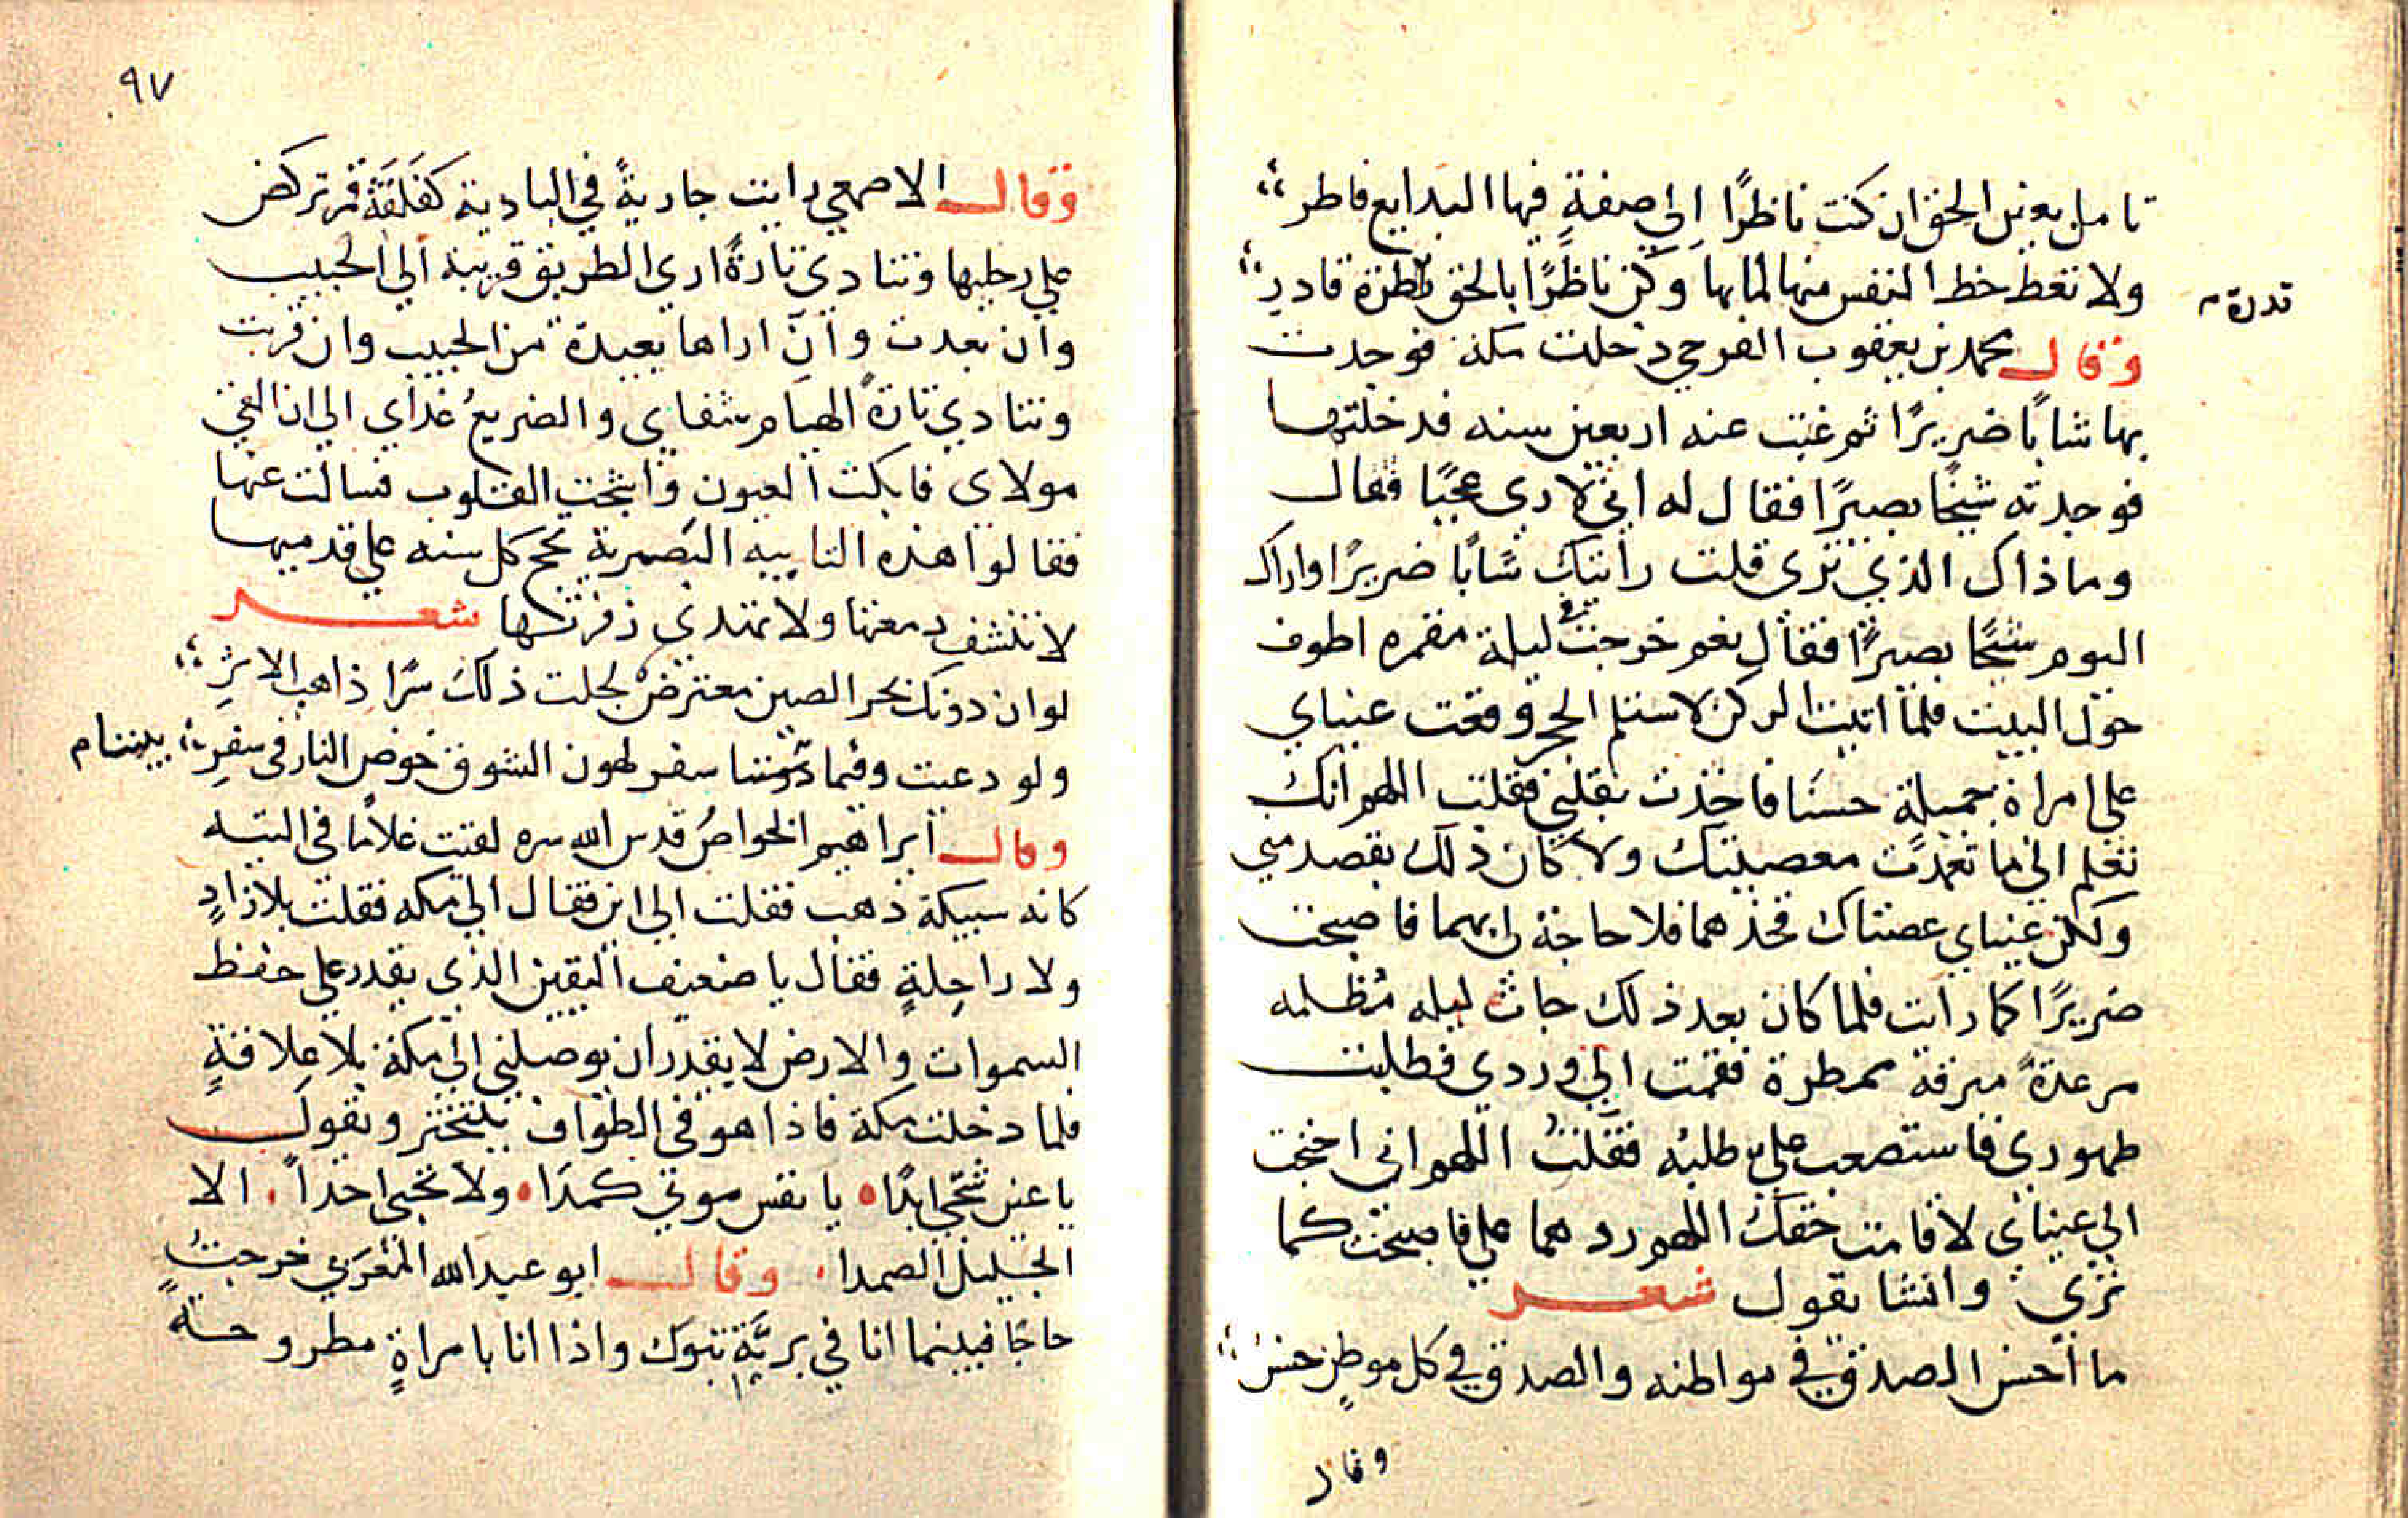 تامل بعين الحق ان كنت ناظرًا الي صفةٍ فيها البدايع فاطر
ولا تعط حظ النفس منها لما بها وكن ناظرًا بالحق قدرة قادر
وقال محمد بن يعقوب الفرجي دخلت مكة فوجدت
بها شابًا ضريرًا ثم غبت عنه اربعين سنه فدخلتها
فوجدته شيخًا بصيرًا فقال له اني لاري عجبًا فقال
وما ذاك الذي تري قلت رايتك شابًا ضريرًا واراك
اليوم شيخًا بصيرًا فقال نعم خرجت ليلة مقمره اطوف
حول البيت فلما اتيت الركن لاستلم الحجر وقعت عيناي
علي امراة جميلة حسنا فاخذت بقلبي فقلت اللهم انك
تعلم اني ما تعمدت معصيتك ولا كان ذلك بقصد مني
ولكن عيناي عصتاك فخذهما فلا حاجة لي بهما فاصبحت
ضريرًا كما رايت فلما كان بعد ذلك جات ليله مُظلمه
مرعدةً مبرقة ممطرة فقمت الي وردي فطلبت
طهوري فاستصعب علي طلبه فقلت اللهم اني احتجت
الي عيناي لاقامت حقك اللهم ردهما علي فاصبحت كما
تري وانشا يقول شعر
ما احسن الصدق في مواطنه والصدق في كل موطنٍ حسن
وقال
قدرة
٩٧
وقال الاصمعي رايت جاريةً في البادية كفلقة قمر تركض
علي رجليها وتنادي تارةً اري الطريق قريبة الي الحبيب
وان بعدت وان اراها بعيدة من الحبيب وان قربت
وتنادي تارة الهيام شفاي والضريعُ غداي الي ان القي
مولاي فابكت العيون واشجت القلوب فسالت عنها
فقالوا هذه التايبه البصرية تحج كل سنه علي قدميها
لا تنشف دمعتها ولا تهتدي زفرتها شعر
لو ان دونك بحر الصين معترض لجلت ذلك سرًا ذاهب الاثرِ
ولو دعيت وفيما بيننا سقر لهون الشوق خوض النار في سفرِ
بيننا م
وقال ابراهيم الخواصُ قدس الله سره لقيت غلامًا في التيه
كانه سبيكة ذهب فقلت الي اين فقال الي مكه فقلت بلا زادٍ
ولا راحِلةٍ فقال يا ضعيف اليقين الذي يقدر علي حفظ
السموات والارض لا يقدر ان يوصلني الي مكة بلا عِلاقةٍ
فلما دخلت مكة فاذا هو في الطواف يتبختر ويقول
يا عين سُحّي ابدًا يا نفس موتي كمدًا ولا تحبي احدًا الا
الجليل الصمدا وقال ابو عبد الله المغربي خرجتُ
حاجًا فبينما انا في بريَّة تبوك واذا انا بامراةٍ مطروحة